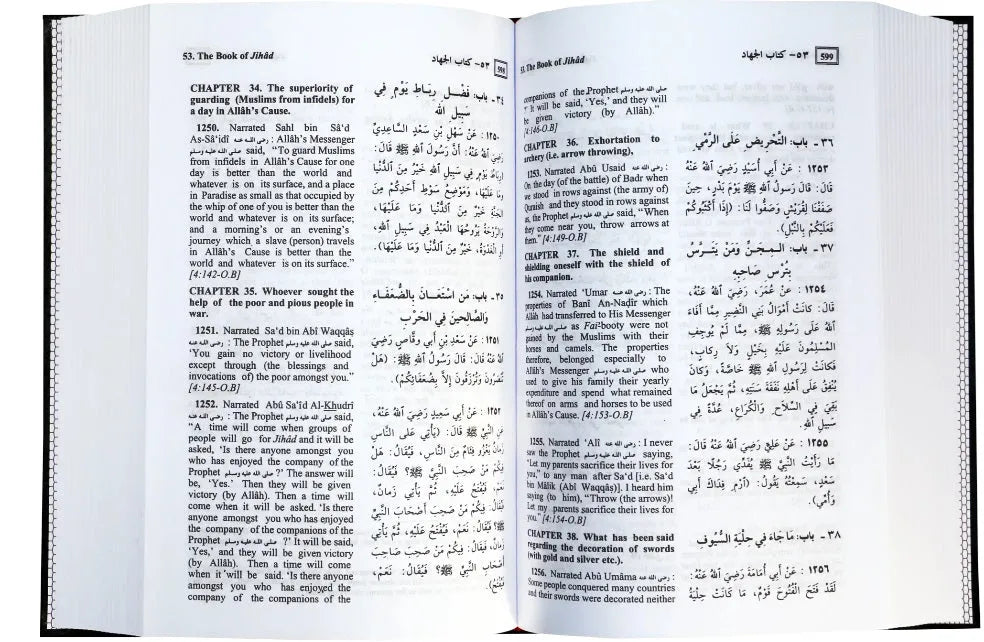 53. The Book of Jihâd
٥٣- كتاب الجهاد
598
CHAPTER 34. The superiority of
guarding (Muslims from infidels) for
a day in Allâh's Cause.
1250. Narrated Sahl bin Sâ'd
As-Sâ'idî رضى الله عنه : Allâh's Messenger
صلى الله عليه وسلم said, "To guard Muslims
from infidels in Allâh's Cause for one
day is better than the world and
whatever is on its surface, and a place
in Paradise as small as that occupied by
the whip of one of you is better than the
world and whatever is on its surface;
and a morning's or an evening's
journey which a slave (person) travels
in Allâh's Cause is better than the
world and whatever is on its surface."
[4:142-O.B]
CHAPTER 35. Whoever sought the
help of the poor and pious people in
war.
1251. Narrated Sa'd bin Abî Waqqâs
رضى الله عنه : The Prophet صلى الله عليه وسلم said,
'You gain no victory or livelihood
except through (the blessings and
invocations of) the poor amongst you."
[4:145-O.B]
1252. Narrated Abû Sa'îd Al-Khudrî
رضى الله عنه : The Prophet صلى الله عليه وسلم said,
"A time will come when groups of
people will go for Jihâd and it will be
asked, 'Is there anyone amongst you
who has enjoyed the company of the
Prophet صلى الله عليه وسلم ?' The answer will
be, 'Yes.' Then they will be given
victory (by Allâh). Then a time will
come when it will be asked. 'Is there
anyone amongst you who has enjoyed
the company of the companions of the
Prophet صلى الله عليه وسلم ?' It will be said,
'Yes,' and they will be given victory
(by Allâh). Then a time will come
when it 'will be said. 'Is there anyone
amongst you who has enjoyed the
company of the companions of the
٣٤ - باب: فَضْلِ رِبَاطِ يَوْمٍ فِي
سَبِيلِ اللهِ
١٢٥٠ : عَنْ سَهْلِ بْنِ سَعْدٍ السَّاعِدِيِّ
رَضِيَ اللهُ عَنْهُ: أَنَّ رَسُولَ اللهِ ﷺ قَالَ:
(رِبَاطُ يَوْمٍ فِي سَبِيلِ اللهِ خَيْرٌ مِنَ الدُّنْيَا
وَمَا عَلَيْهَا، وَمَوْضِعُ سَوْطِ أَحَدِكُمْ مِنَ
الجَنَّةِ خَيْرٌ مِنَ الدُّنْيَا وَمَا عَلَيْهَا،
وَالرَّوْحَةُ يَرُوحُهَا الْعَبْدُ فِي سَبِيلِ اللهِ،
أَوِ الْغَدْوَةُ، خَيْرٌ مِنَ الدُّنْيَا وَمَا عَلَيْهَا).
٣٥ - باب: مَن اسْتَعَانَ بِالضُّعَفَاءِ
وَالصَّالِحِينَ فِي الحَرْبِ
١٢٥١ : عَنْ سَعْدِ بْنِ أَبِي وَقَّاصٍ رَضِيَ
اللهُ عَنْهُ قَالَ: قَالَ رَسُولُ اللهِ ﷺ: (هَلْ
تُنْصَرُونَ وَتُرْزَقُونَ إِلَّا بِضُعَفَائِكُمْ).
١٢٥٢ : عَنْ أَبِي سَعِيدٍ رَضِيَ اللهُ عَنْهُ،
عَنِ النَّبِيِّ ﷺ قَالَ: (يَأْتِي عَلَى النَّاسِ
زَمَانٌ يَغْزُو فِئَامٌ مِنَ النَّاسِ، فَيُقَالُ: هَلْ
فِيكُمْ مَنْ صَحِبَ النَّبِيَّ ﷺ؟ فَيُقَالُ:
نَعَمْ، فَيُفْتَحُ عَلَيْهِ، ثُمَّ يَأْتِي زَمَانٌ،
فَيُقَالُ: فِيكُمْ مَنْ صَحِبَ أَصْحَابَ النَّبِيِّ
ﷺ؟ فَيُقَالُ: نَعَمْ، فَيُفْتَحُ، ثُمَّ يَأْتِي
زَمَانٌ، فَيُقَالُ: فِيكُمْ مَنْ صَحِبَ صَاحِبَ
أَصْحَابِ النَّبِيِّ ﷺ؟ فَيُقَالُ: نَعَمْ،
فَيُفْتَحُ).
53. The Book of Jihâd
٥٣- كتاب الجهاد
599
companions of the Prophet صلى الله عليه وسلم
?' It will be said, 'Yes,' and they will
be given victory (by Allâh)."
[4:146-O.B]
CHAPTER 36. Exhortation to
archery (i.e. arrow throwing),
1253. Narrated Abû Usaid رضى الله عنه :
On the day (of the battle) of Badr when
we stood in rows against (the army of)
Quraish and they stood in rows against
us, the Prophet صلى الله عليه وسلم said, "When
they come near you, throw arrows at
them." [4:149-O.B]
CHAPTER 37. The shield and
shielding oneself with the shield of
his companion.
1254. Narrated 'Umar رضى الله عنه : The
properties of Banî An-Nadîr which
Allâh had transferred to His Messenger
صلى الله عليه وسلم as Fai'-booty were not
gained by the Muslims with their
horses and camels. The properties
therefore, belonged especially to
Allâh's Messenger صلى الله عليه وسلم who
used to give his family their yearly
expenditure and spend what remained
thereof on arms and horses to be used
in Allâh's Cause. [4:153-O.B]
1255. Narrated 'Alî رضى الله عنه : I never
saw the Prophet صلى الله عليه وسلم saying,
'Let my parents sacrifice their lives for
you," to any man after Sa'd [i.e. Sa'd
bin Mâlik (Abî Waqqâs)]. I heard him
saying (to him), "Throw (the arrows)!
Let my parents sacrifice their lives for
you." [4:154-O.B]
CHAPTER 38. What has been said
regarding the decoration of swords
(with gold and silver etc.).
1256. Narrated Abû Umâma رضى الله عنه :
Some people conquered many countries
and their swords were decorated neither
٣٦ - باب: التَّحْرِيضِ عَلَى الرَّمْيِ
١٢٥٣ : عَنْ أَبِي أُسَيْدٍ رَضِيَ اللهُ عَنْهُ
قَالَ: قَالَ رَسُولُ اللهِ ﷺ يَوْمَ بَدْرٍ، حِينَ
صَفَفْنَا لِقُرَيْشٍ وَصَفُّوا لَنَا: (إِذَا أَكْثَبُوكُمْ
فَعَلَيْكُمْ بِالنَّبْلِ).
٣٧ - باب: الْمِجَنِّ وَمَنْ يَتَتَرَّسُ
بِتُرْسِ صَاحِبِهِ
١٢٥٤ : عَنْ عُمَرَ، رَضِيَ اللهُ عَنْهُ،
قَالَ: كَانَتْ أَمْوَالُ بَنِي النَّضِيرِ مِمَّا أَفَاءَ
اللهُ عَلَى رَسُولِهِ ﷺ، مِمَّا لَمْ يُوجِفِ
المُسْلِمُونَ عَلَيْهِ بِخَيْلٍ وَلَا رِكَابٍ،
فَكَانَتْ لِرَسُولِ اللهِ ﷺ خَاصَّةً، وَكَانَ
يُنْفِقُ عَلَى أَهْلِهِ نَفَقَةَ سَنَتِهِ، ثُمَّ يَجْعَلُ مَا
بَقِيَ فِي السِّلَاحِ وَالْكُرَاعِ، عُدَّةً فِي
سَبِيلِ اللهِ.
١٢٥٥ : عَنْ عَلِيٍّ رَضِيَ اللهُ عَنْهُ قَالَ:
مَا رَأَيْتُ النَّبِيَّ ﷺ يُفَدِّي رَجُلًا بَعْدَ
سَعْدٍ، سَمِعْتُهُ يَقُولُ: (ارْمِ فِدَاكَ أَبِي
وَأُمِّي).
٣٨ - باب: مَا جَاءَ فِي حِلْيَةِ السُّيُوفِ
١٢٥٦ : عَنْ أَبِي أُمَامَةَ رَضِيَ اللهُ عَنْهُ:
لَقَدْ فَتَحَ الْفُتُوحَ قَوْمٌ، مَا كَانَتْ حِلْيَةُ